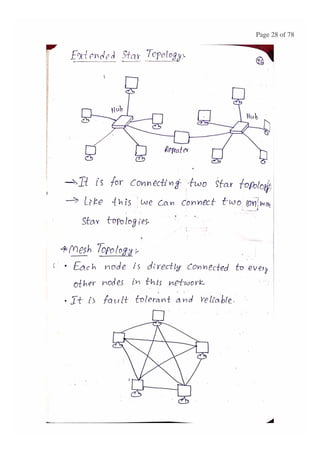 Page 28 of 78
Extended Star Topology:-
Hub
Hub
Repeater
→It is for connecting two star topology.
→ Like this we can connect two (or) more
Star topologies.
* Mesh Topology:-
• Each node is directly connected to every
other nodes in this network.
• It is fault tolerant and reliable.